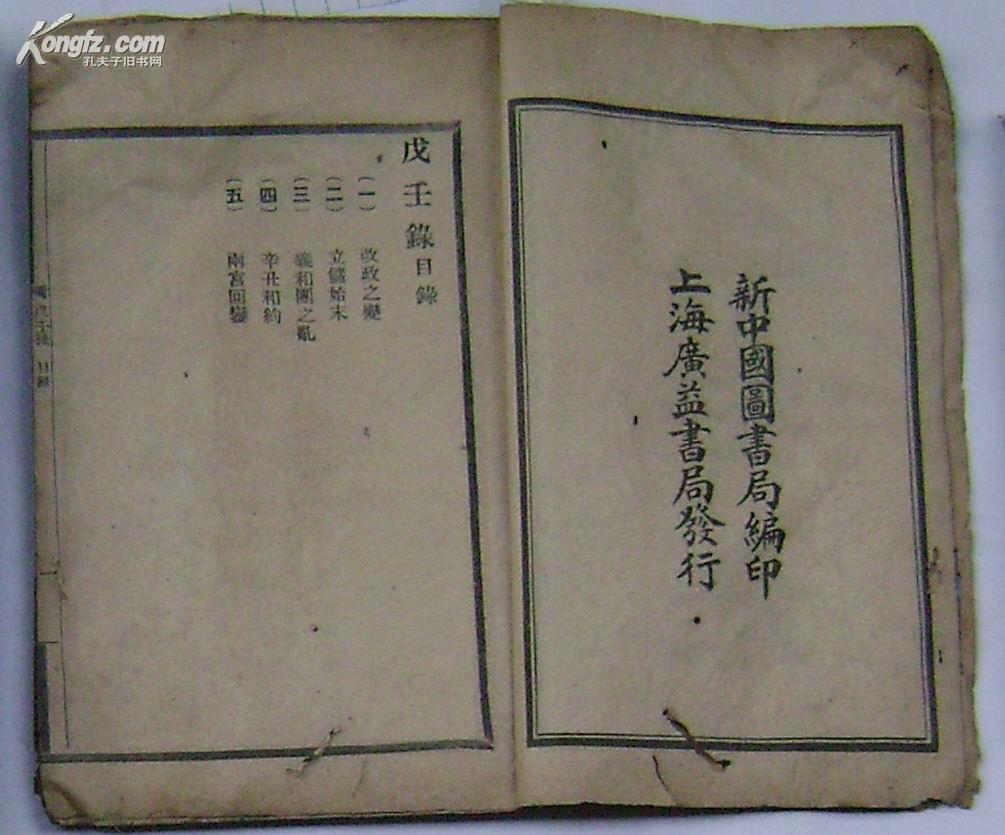 新中國圖書局編印
上海廣益書局發行
戊壬錄目錄
(一) 改政之變
(二) 立儲始末
(三) 義和團之亂
(四) 辛丑和約
(五) 兩宮回鑾
目錄
Kongfz.com
孔夫子旧书网